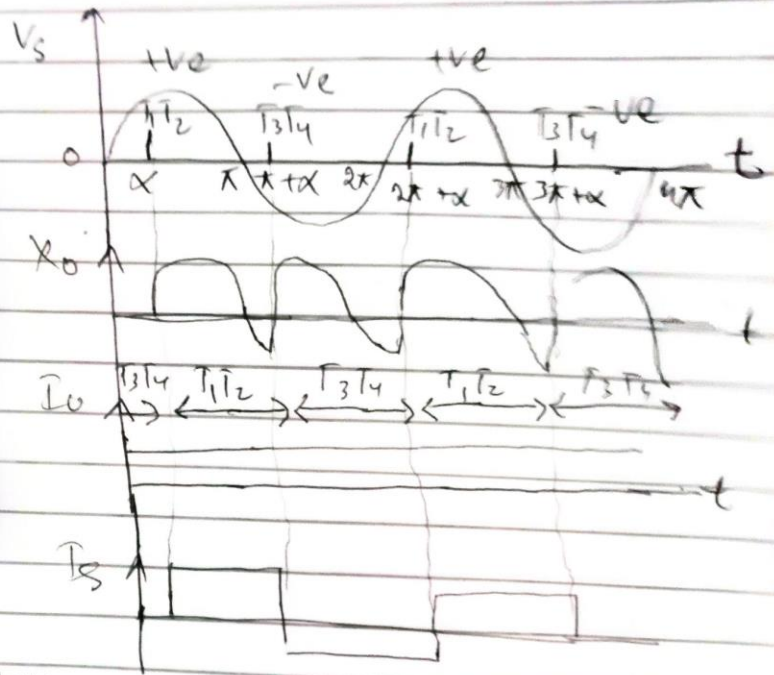 Vs
+ve -ve +ve -ve
T1T2 T3T4 T1T2 T3T4
0 t
α π π+α 2π 2π+α 3π 3π+α 4π
t
T3T4 T1T2 T3T4 T1T2 T3T4
Io
t
Is